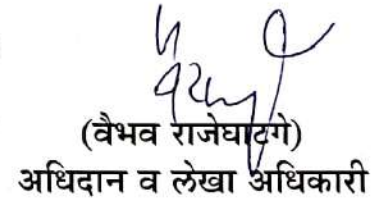 (वैभव राजेघाटगे)
अधिदान व लेखा अधिकारी